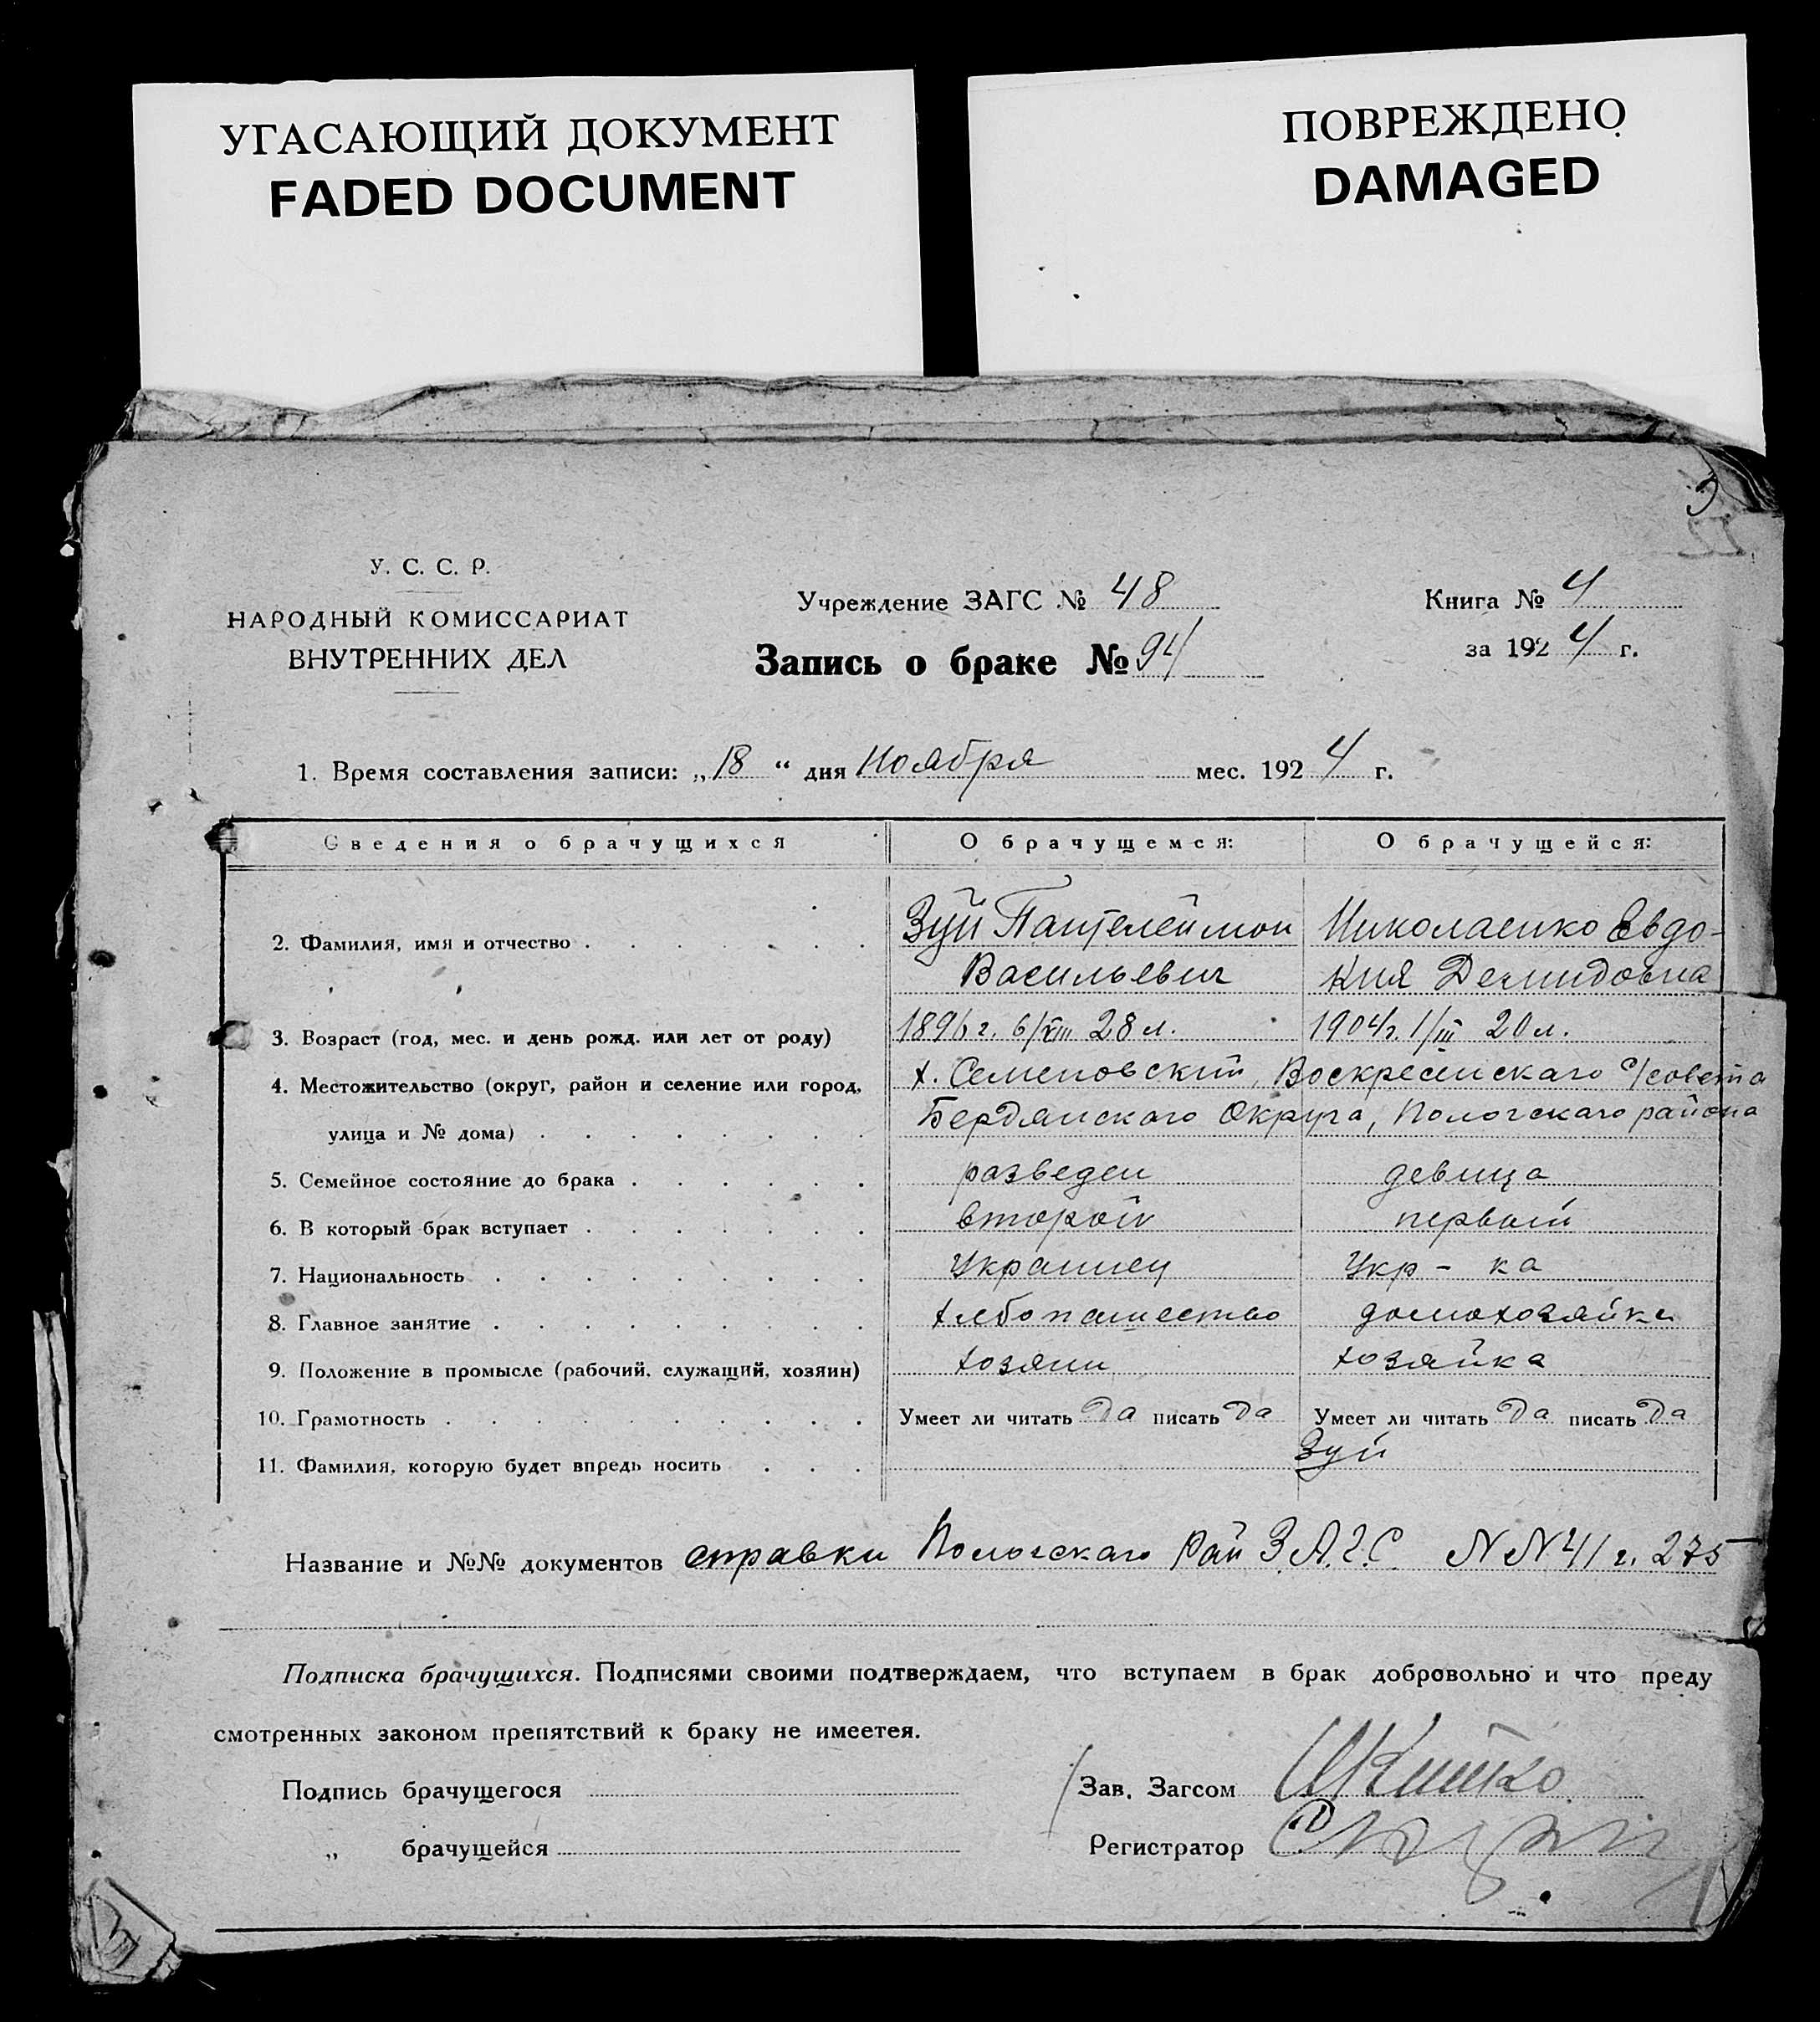 УГАСАЮЩИЙ ДОКУМЕНТ
FADED DOCUMENT
ПОВРЕЖДЕНО
DAMAGED
У. С. С. Р.
НАРОДНЫЙ КОМИССАРИАТ
ВНУТРЕННИХ ДЕЛ
Учреждение ЗАГС № 48
Запись о браке № 94
Книга № 4
за 1924 г.
1. Время составления записи: „18“ дня Ноября мес. 1924 г.
Сведения о брачущихся О брачущемся: О брачущейся:
2. Фамилия, имя и отчество Зуй Пантелеймон Николаенко Евдо-
Васильевич кия Демидовна
3. Возраст (год, мес. и день рожд. или лет от роду) 1896 г. 6/VIII 28 л. 1904 г. 1/III 20 л.
4. Местожительство (округ, район и селение или город, х. Семеновский, Воскресенскаго с/совета
улица и № дома) Бердянского Округа, Пологскаго района
5. Семейное состояние до брака разведен девица
6. В который брак вступает второй первый
7. Национальность Украинец Укр-ка
8. Главное занятие хлебопашество домохозяйка
9. Положение в промысле (рабочий, служащий, хозяин) хозяин хозяйка
10. Грамотность Умеет ли читать Да писать Да Умеет ли читать Да писать Да
11. Фамилия, которую будет впредь носить Зуй
Название и №№ документов справки Пологскаго Рай З.А.Г.С. NN 41 г. 275
Подписка брачущихся. Подписями своими подтверждаем, что вступаем в брак добровольно и что преду
смотренных законом препятствий к браку не имеетея.
Подпись брачущегося Зав. Загсом
„ брачущейся Регистратор